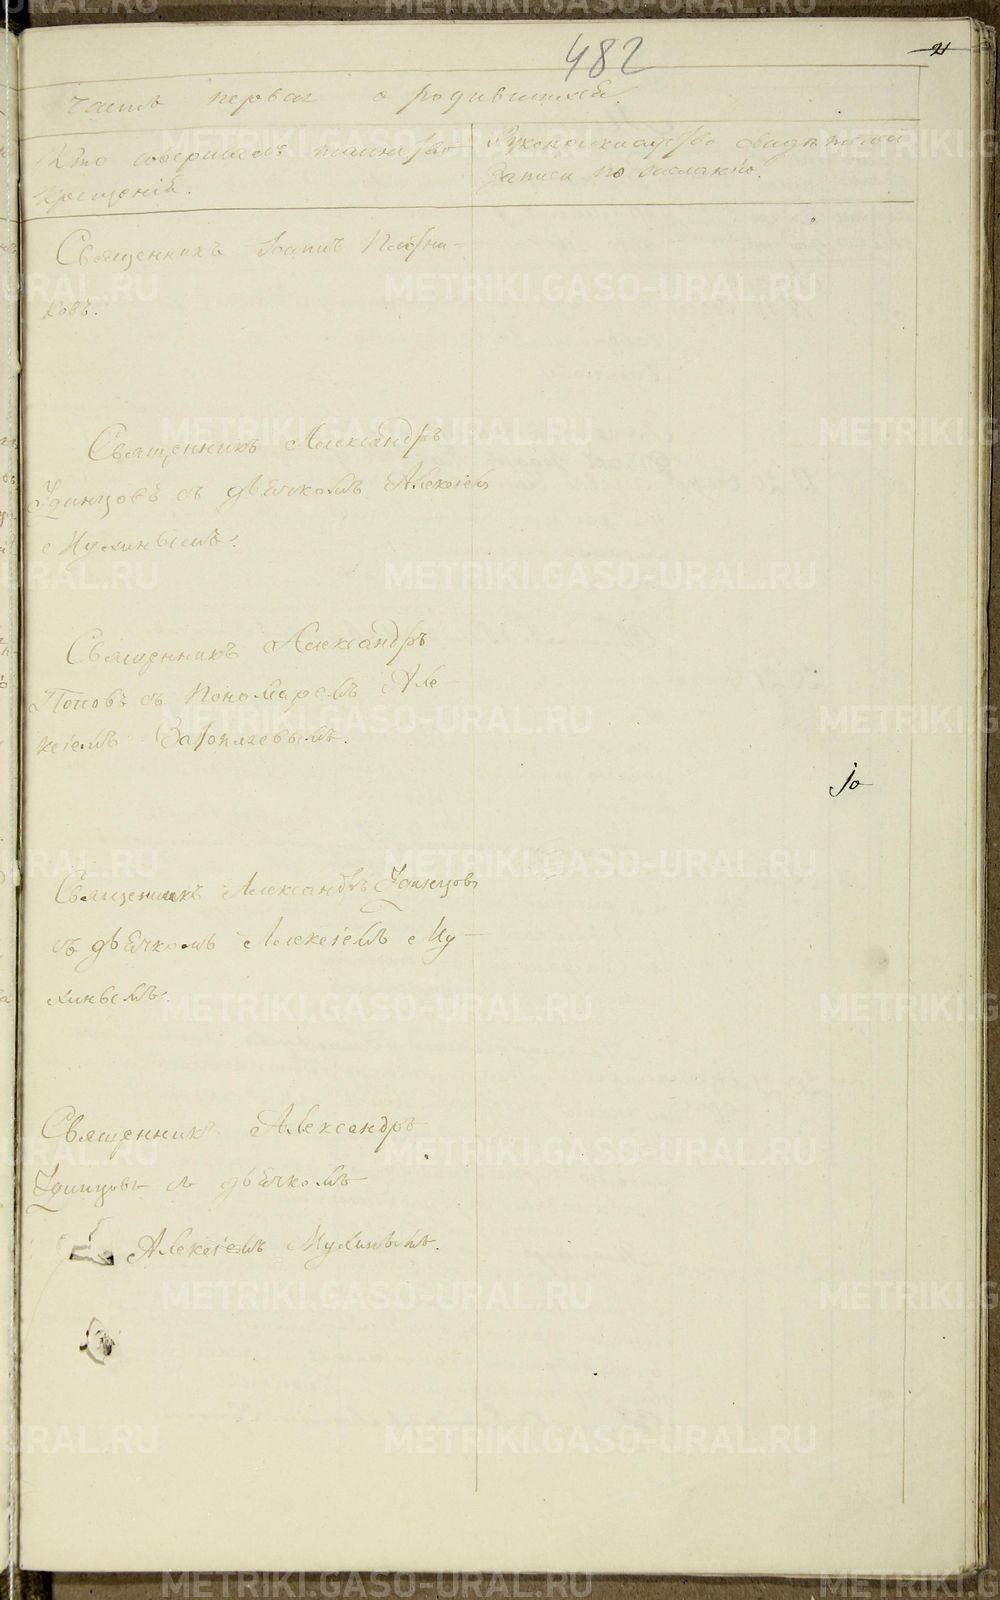 482
21
Часть первая о родившихся.
Кто совершалъ таинство
крещенія.
Рукоприкладство свидѣтелей
записи по желанію.
Священникъ Іоаннъ
ковъ.
Священникъ Александръ
Удинцовъ съ дьячкомъ Алексѣем
Мухинымъ.
Священникъ Александръ
Поповъ съ Пономаремъ Але-
ксіемъ
Священникъ Александръ Удинцовъ
съ дьячкомъ Алексіемъ Му-
хинымъ.
Священникъ Александръ
Удинцовъ съ дьячкомъ
Алексіемъ Мухинымъ.
METRIKI.GASO-URAL.RU